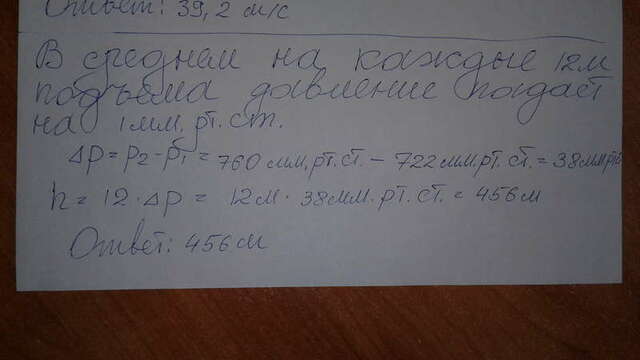 Ответ: 39,2 м/с
В среднем на каждые 12м
подъёма давление падает
на 1 мм. рт. ст.
Δp = p2 - p1 = 760 мм.рт.ст. - 722 мм рт. ст. = 38 мм рт.ст
h = 12 · Δp = 12 м · 38 мм. рт. ст. = 456 м
Ответ: 456 м